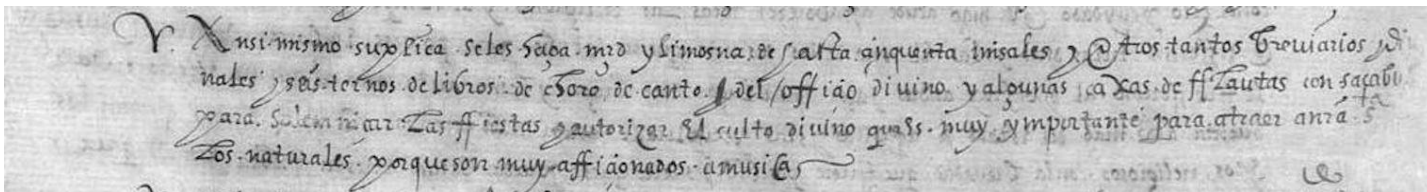 V. Ansi mismo suplica se les haga mrd y limosna de hasta çinquenta misales y otros tantos breviarios y di
nales y seis ternos de libros de choro de canto y del officio divino y algunas caxas de fflautas con sacabu
para solemnicar las ffiestas y autorizar el culto divino ques muy ymportante para atraer a nra sta
los naturales porque son muy afficionados a musica